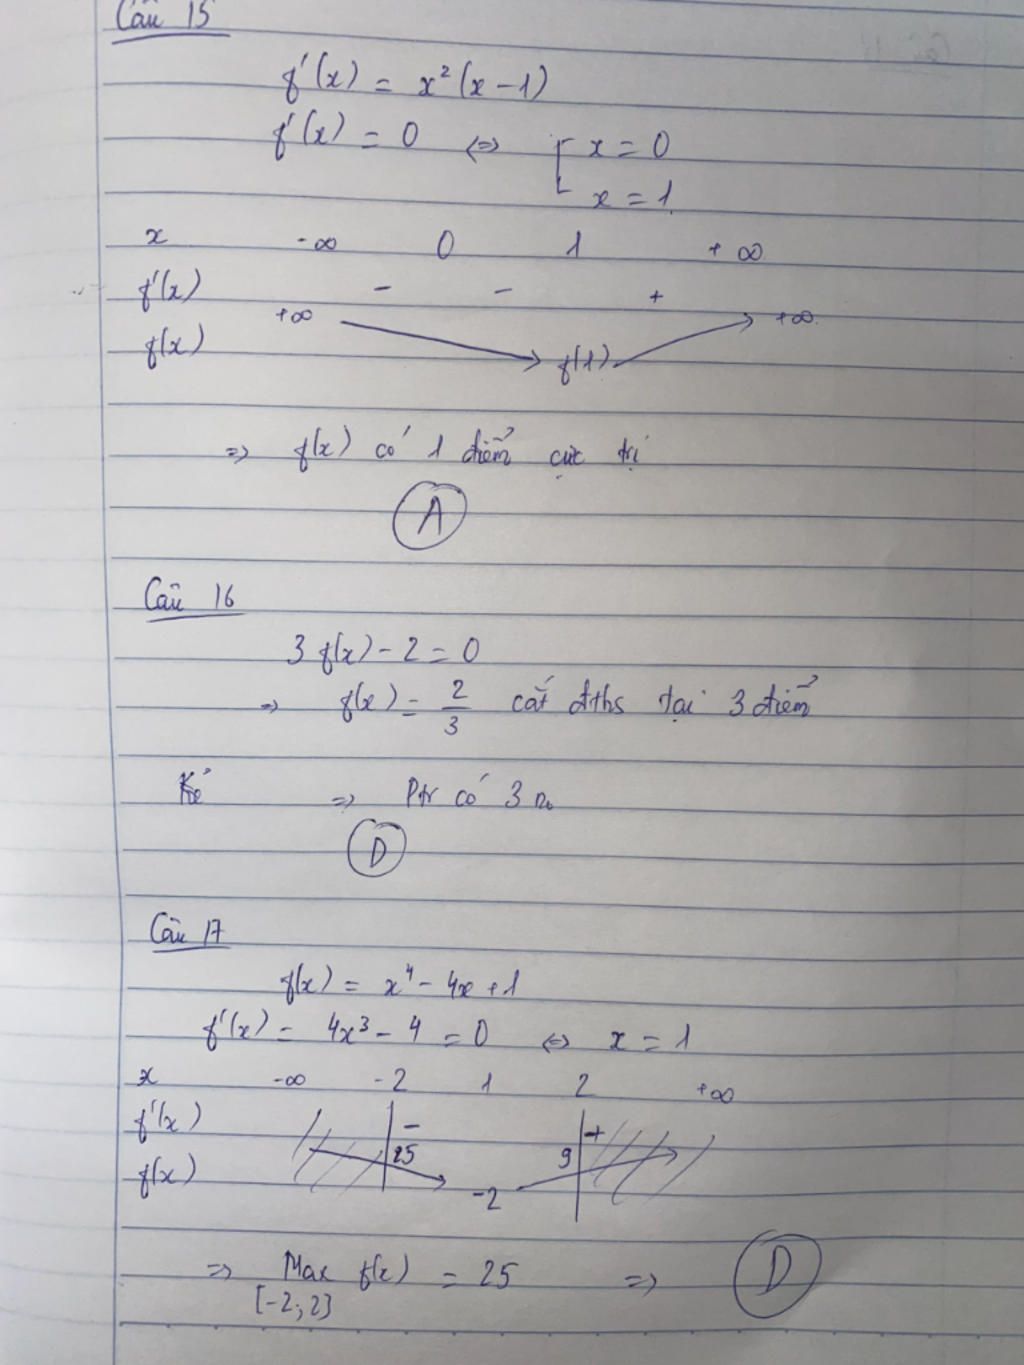 Câu 15
f'(x) = x²(x-1)
f'(x) = 0 <=> [ x = 0
x = 1
x -∞ 0 1 +∞
f'(x) - - +
f(x) +∞ f(1) +∞
=> f(x) có 1 điểm cực trị
A
Câu 16
3f(x) - 2 = 0
=> f(x) = 2/3 cắt đths tại 3 điểm
Kẻ => Ptr có 3 n₀
D
Câu 17
f(x) = x⁴ - 4x + 1
f'(x) = 4x³ - 4 = 0 <=> x = 1
x -∞ -2 1 2 +∞
f'(x) - +
f(x) 25 -2 9
=> Max f(x) = 25 => D
[-2;2]